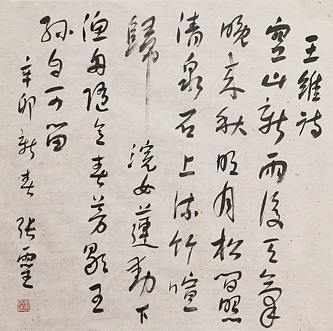 王維詩
空山新雨後天氣
晚来秋明月松間照
清泉石上流竹喧
歸浣女蓮動下
漁舟隨意春芳歇王
孫自可留
辛卯新春張